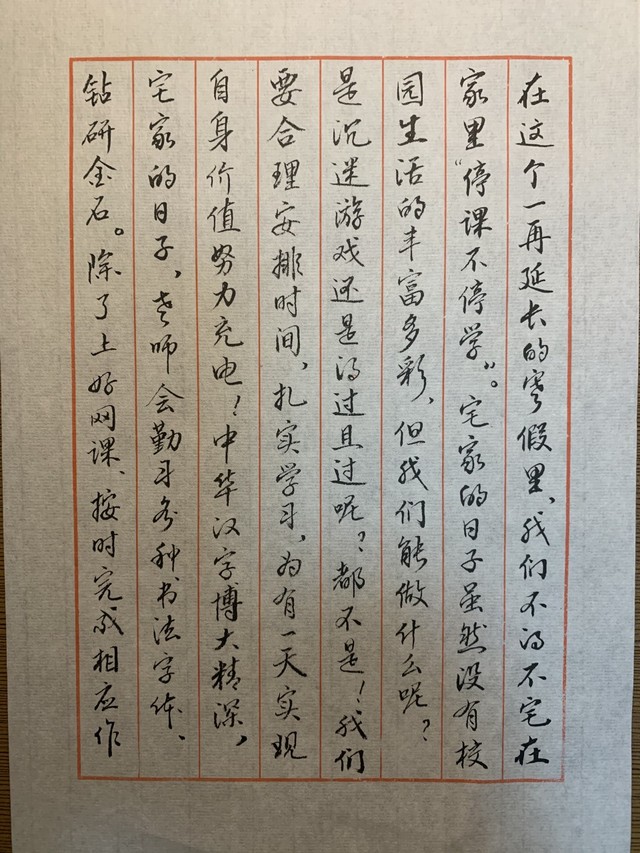 在这个一再延长的寒假里、我们不得不宅在
家里“停课不停学”。宅家的日子虽然没有校
园生活的丰富多彩，但我们能做什么呢？
是沉迷游戏还是得过且过呢？都不是！我们
要合理安排时间，扎实学习，为有一天实现
自身价值努力充电！中华汉字博大精深，
宅家的日子，老师会勤习各种书法字体、
钻研金石。除了上好网课、按时完成相应作